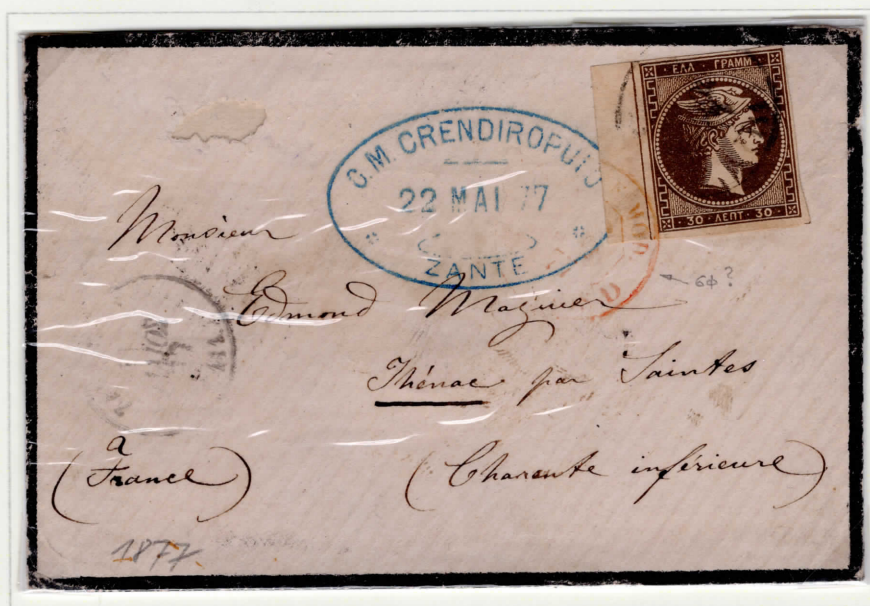 ΕΛΛ · ΓΡΑΜΜ
30 · ΛΕΠΤ · 30
C.M. CRENDIROPUL
22 MAI 77
ZANTE
6ϕ?
Monsieur
Edmond Maguier
Thénac par Saintes
(Charente inférieure)
(à
France)
1877